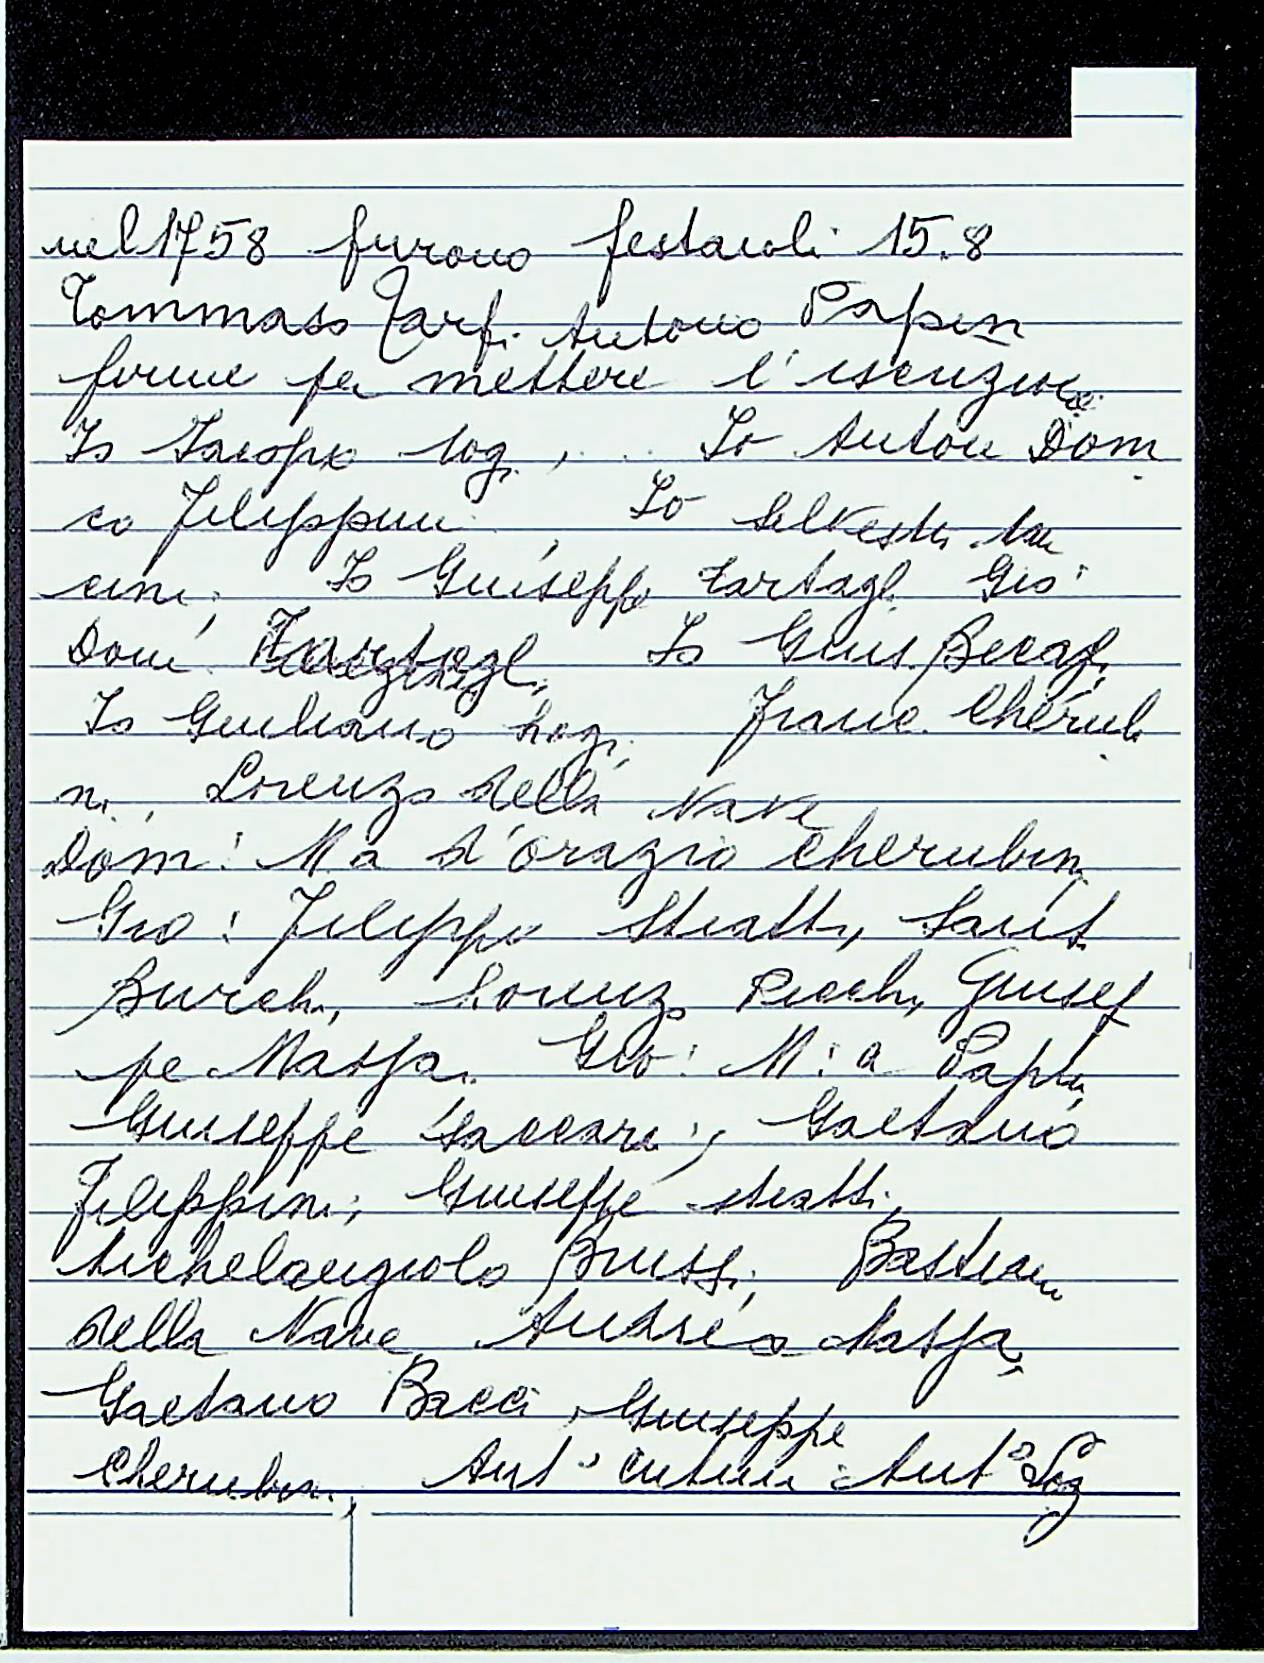 nel 1758 furono festaioli 15.8
Tommaso Zarfi Antonio Papin
firme per mettere l'isenzione
Io Iacopo Log, Io Anton Dom
co Filippini Io Silvestr
cini, Io Giuseppe Tartagl. Gio:
Dom: Tartagl, Io Gius. Becag,
Io Giuliano Logi. Franc. Cherub
ni, Lorenzo della Nave
Dom: Ma d'Orazio Cherubin
Gio: Filippo Stiatti, Sant
Burchi, Lorenzo Picchi, Giusep
pe Massai. Gio: M:a Papin
Giuseppe Vaccari, Gaetano
Filippini, Giuseppe Stiatti,
Michelangiolo Brussi, Bastian
della Nave Andrea Massai
Gaetano Bacci, Giuseppe
Cherubini, Ant° Ant° Log